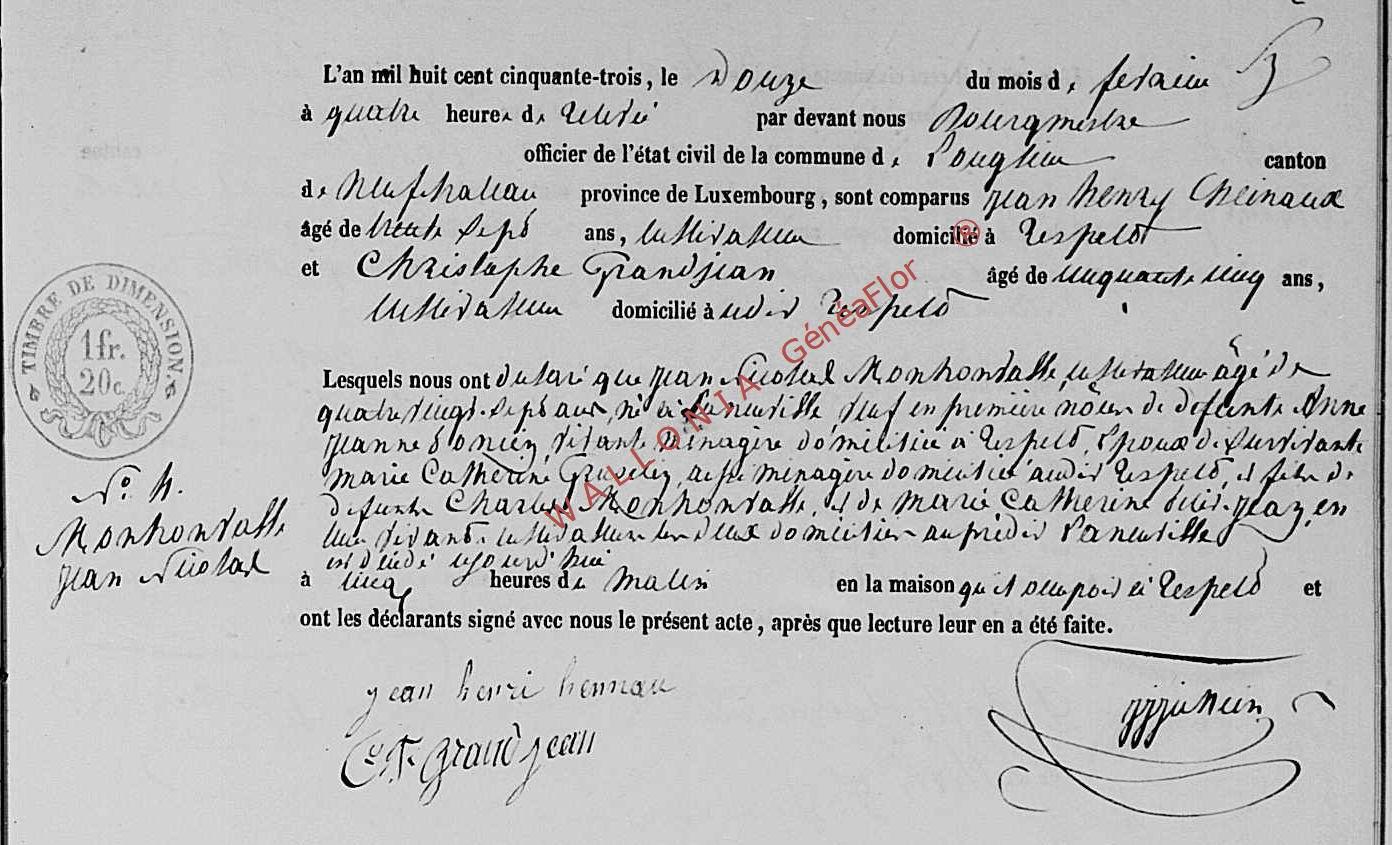 L'an mil huit cent cinquante-trois, le Douze du mois de fevrier
à quatre heures de relevé par devant nous Bourgmestre
officier de l'état civil de la commune de Longlier canton
de Neufchateau province de Luxembourg, sont comparus jean henry
âgé de trente sept ans, cultivateur domicilié à Respelt
et Christophe Grandjean âgé de cinquante cinq ans,
cultivateur domicilié à Respelt
Lesquels nous ont declaré que jean Nicolas Monhonvalle cultivateur âgé de
quatre vingt sept ans, né à Laneuville, veuf en première nôces de defunte Anne
jeanne vivante ménagère domiciliée à Respelt, epoux de survivante
marie Catherine ménagère domiciliée audit Respelt, et fils de
defunts Charles Monhonvalle, et de marie Catherine en
leur vivant cultivateur les deux domiciliés au prédit Laneuville
est décédé aujourd'hui
à cinq heures du matin en la maison qu'il occupoit à Respelt et
ont les déclarants signé avec nous le présent acte, après que lecture leur en a été faite.
TIMBRE DE DIMENSION
1 fr.
20 c.
No. 4.
Monhonvalle
jean Nicolas
jean henri hennau
grandjean
WALLONIA GénéaFlor ®